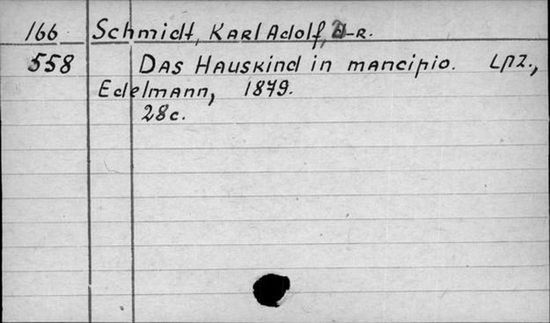 166 Schmidt, Karl Adolf, d-r.
558 Das Hauskind in mancipio. Lpz.,
Edelmann, 1879.
28c.